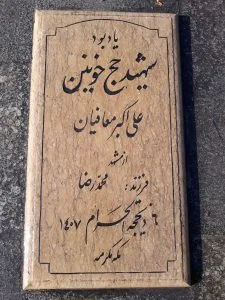 یادبود
شهید حج خونین
علی اکبر معافیان
از مشهد
فرزند: محمدرضا
۶ ذیحجة الحرام ۱۴۰۷
مکه مکرمه